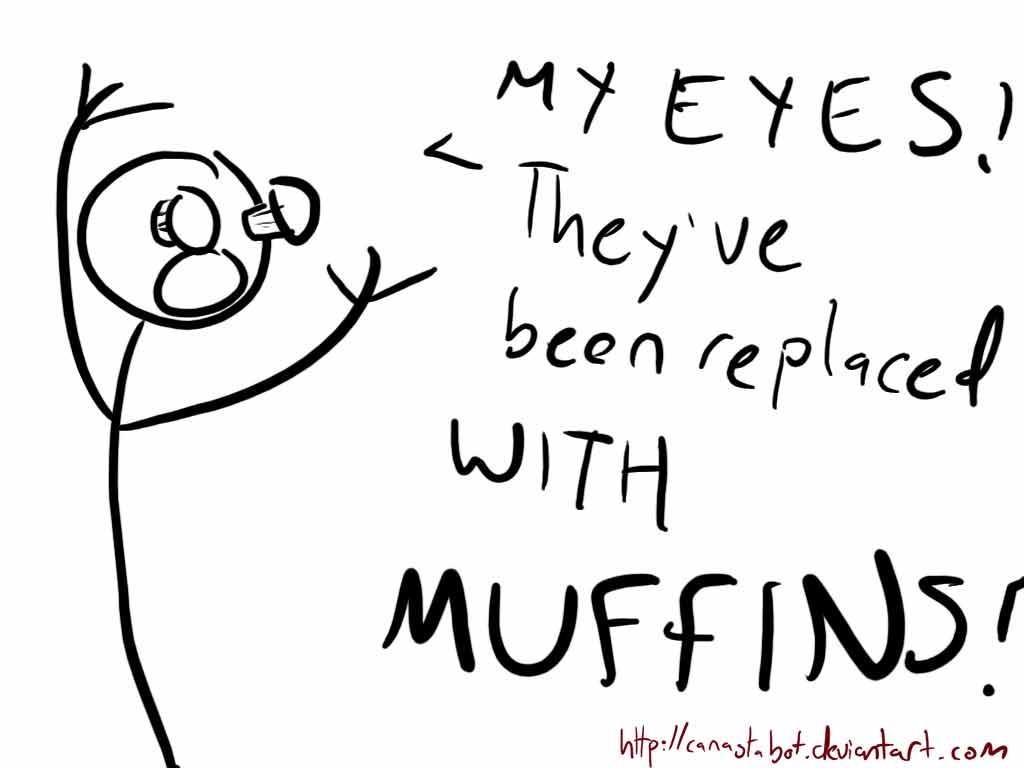 MY EYES!
They've
been replaced
WITH
MUFFINS!
http://canastabot.deviantart.com